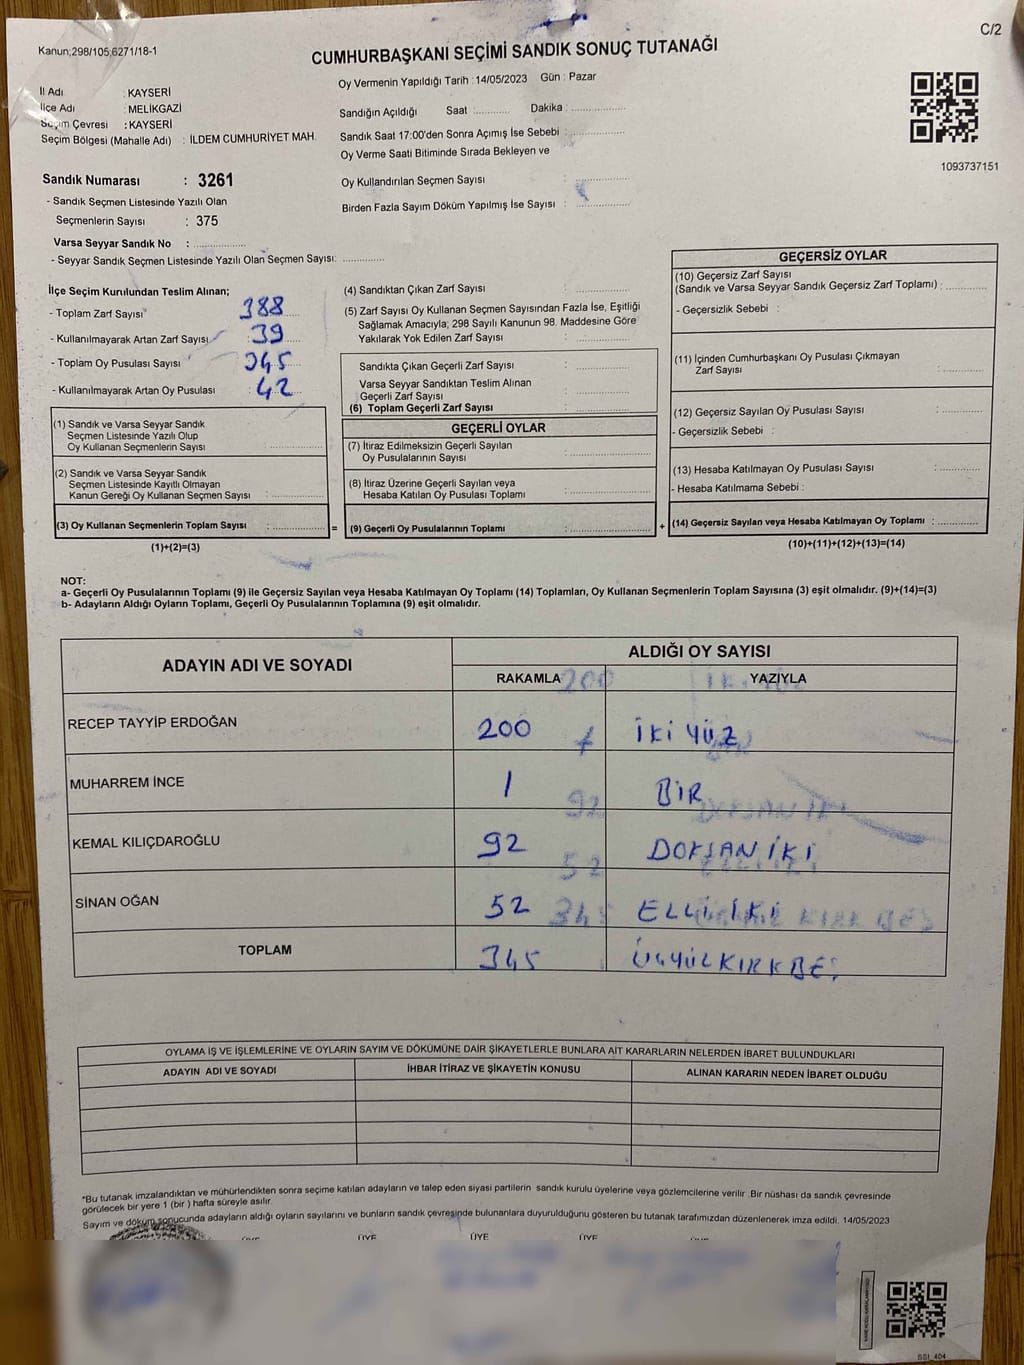 C/2
Kanun;298/105;6271/18-1
CUMHURBAŞKANI SEÇİMİ SANDIK SONUÇ TUTANAĞI
Oy Vermenin Yapıldığı Tarih : 14/05/2023 Gün : Pazar
İl Adı : KAYSERİ
İlçe Adı : MELİKGAZİ
Seçim Çevresi : KAYSERİ
Seçim Bölgesi (Mahalle Adı) : İLDEM CUMHURİYET MAH.
Sandığın Açıldığı Saat :........... Dakika :.................
Sandık Saat 17:00'den Sonra Açımış İse Sebebi :.................
Oy Verme Saati Bitiminde Sırada Bekleyen ve
Oy Kullandırılan Seçmen Sayısı :.................
Birden Fazla Sayım Döküm Yapılmış İse Sayısı :.................
1093737151
Sandık Numarası : 3261
- Sandık Seçmen Listesinde Yazılı Olan
Seçmenlerin Sayısı : 375
Varsa Seyyar Sandık No :.................
- Seyyar Sandık Seçmen Listesinde Yazılı Olan Seçmen Sayısı: .............
İlçe Seçim Kurulundan Teslim Alınan;
- Toplam Zarf Sayısı 388
- Kullanılmayarak Artan Zarf Sayısı : 39
- Toplam Oy Pusulası Sayısı 345
- Kullanılmayarak Artan Oy Pusulası : 42
(1) Sandık ve Varsa Seyyar Sandık
Seçmen Listesinde Yazılı Olup
Oy Kullanan Seçmenlerin Sayısı :.................
(2) Sandık ve Varsa Seyyar Sandık
Seçmen Listesinde Kayıtlı Olmayan
Kanun Gereği Oy Kullanan Seçmen Sayısı :.................
(3) Oy Kullanan Seçmenlerin Toplam Sayısı :.................
(1)+(2)=(3)
=
(4) Sandıktan Çıkan Zarf Sayısı :.................
(5) Zarf Sayısı Oy Kullanan Seçmen Sayısından Fazla İse, Eşitliği
Sağlamak Amacıyla; 298 Sayılı Kanunun 98. Maddesine Göre
Yakılarak Yok Edilen Zarf Sayısı :.................
Sandıkta Çıkan Geçerli Zarf Sayısı :.................
Varsa Seyyar Sandıktan Teslim Alınan
Geçerli Zarf Sayısı :.................
(6) Toplam Geçerli Zarf Sayısı :.................
GEÇERLİ OYLAR
(7) İtiraz Edilmeksizin Geçerli Sayılan
Oy Pusulalarının Sayısı :.................
(8) İtiraz Üzerine Geçerli Sayılan veya
Hesaba Katılan Oy Pusulası Toplamı :.................
(9) Geçerli Oy Pusulalarının Toplamı :.................
+
GEÇERSİZ OYLAR
(10) Geçersiz Zarf Sayısı
(Sandık ve Varsa Seyyar Sandık Geçersiz Zarf Toplamı) :.............
- Geçersizlik Sebebi :
(11) İçinden Cumhurbaşkanı Oy Pusulası Çıkmayan
Zarf Sayısı :.............
(12) Geçersiz Sayılan Oy Pusulası Sayısı :.............
- Geçersizlik Sebebi :
(13) Hesaba Katılmayan Oy Pusulası Sayısı :.............
- Hesaba Katılmama Sebebi :
(14) Geçersiz Sayılan veya Hesaba Katılmayan Oy Toplamı :.............
(10)+(11)+(12)+(13)=(14)
NOT:
a- Geçerli Oy Pusulalarının Toplamı (9) ile Geçersiz Sayılan veya Hesaba Katılmayan Oy Toplamı (14) Toplamları, Oy Kullanan Seçmenlerin Toplam Sayısına (3) eşit olmalıdır. (9)+(14)=(3)
b- Adayların Aldığı Oyların Toplamı, Geçerli Oy Pusulalarının Toplamına (9) eşit olmalıdır.
ADAYIN ADI VE SOYADI
ALDIĞI OY SAYISI
RAKAMLA YAZIYLA
RECEP TAYYİP ERDOĞAN 200 İKİ YÜZ
MUHARREM İNCE 1 BİR
KEMAL KILIÇDAROĞLU 92 DOKSAN İKİ
SİNAN OĞAN 52 ELLİ İKİ
TOPLAM 345 ÜÇYÜZKIRKBEŞ
OYLAMA İŞ VE İŞLEMLERİNE VE OYLARIN SAYIM VE DÖKÜMÜNE DAİR ŞİKAYETLERLE BUNLARA AİT KARARLARIN NELERDEN İBARET BULUNDUKLARI
ADAYIN ADI VE SOYADI İHBAR İTİRAZ VE ŞİKAYETİN KONUSU ALINAN KARARIN NEDEN İBARET OLDUĞU
*Bu tutanak imzalandıktan ve mühürlendikten sonra seçime katılan adayların ve talep eden siyasi partilerin sandık kurulu üyelerine veya gözlemcilerine verilir. Bir nüshası da sandık çevresinde
görülecek bir yere 1 (bir ) hafta süreyle asılır.
Sayım ve döküm sonucunda adayların aldığı oyların sayılarını ve bunların sandık çevresinde bulunanlara duyurulduğunu gösteren bu tutanak tarafımızdan düzenlenerek imza edildi. 14/05/2023
ÜYE ÜYE ÜYE ÜYE